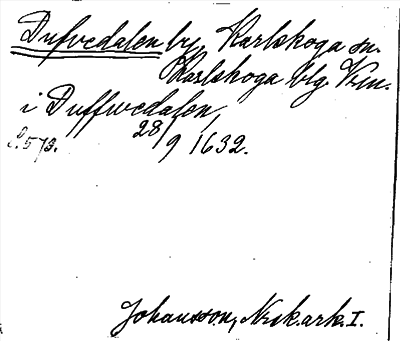 Dufvedalen by, Karlskoga sn.
Karlskoga blg. Vrm.
i Duffwedalen,
s. 573. 28/9 1632.
Johansson, Nrsk. ark. I.